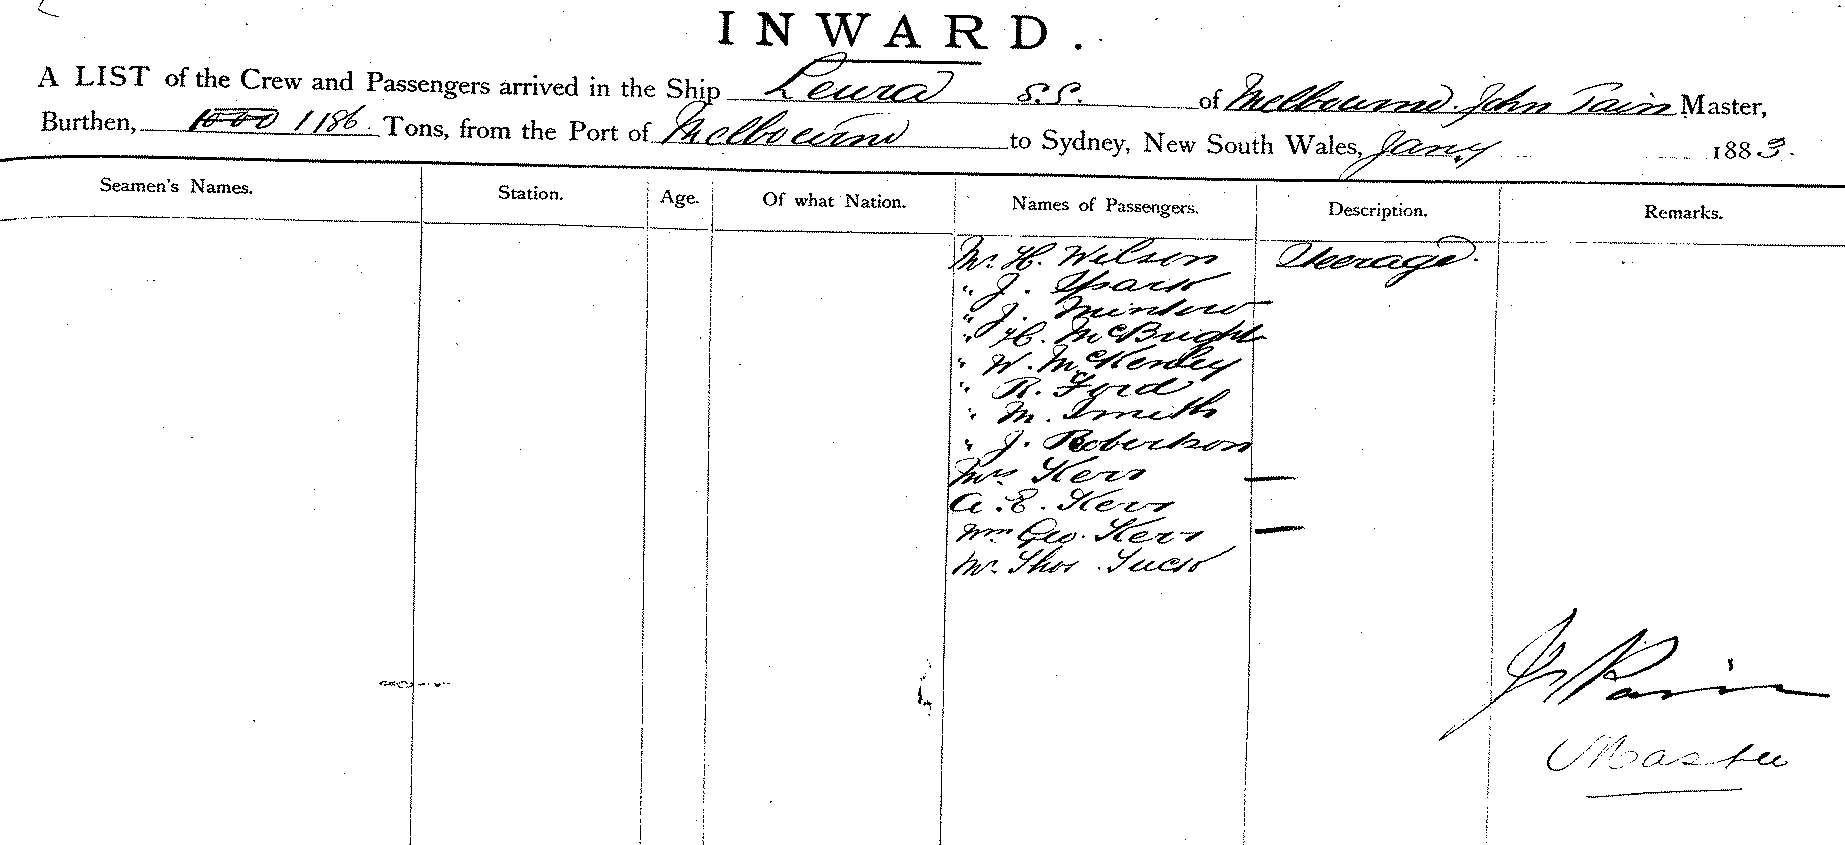 INWARD.
A LIST of the Crew and Passengers arrived in the Ship Leura S.S. of Melbourne. John Pain Master,
Burthen, 1000 1186 Tons, from the Port of Melbourne to Sydney, New South Wales, Jany 1883.
Seamen's Names. Station. Age. Of what Nation. Names of Passengers. Description. Remarks.
Mr. H. Wilson Steerage.
" J. Spark
" J. Minton
" H. McBright
" W. McKenley
" R. Ford
" M. Smith
" J. Robertson
Mrs Kerr —
A. E. Kerr
Geo. Kerr —
Mr. Thos
Jn Pain
Master